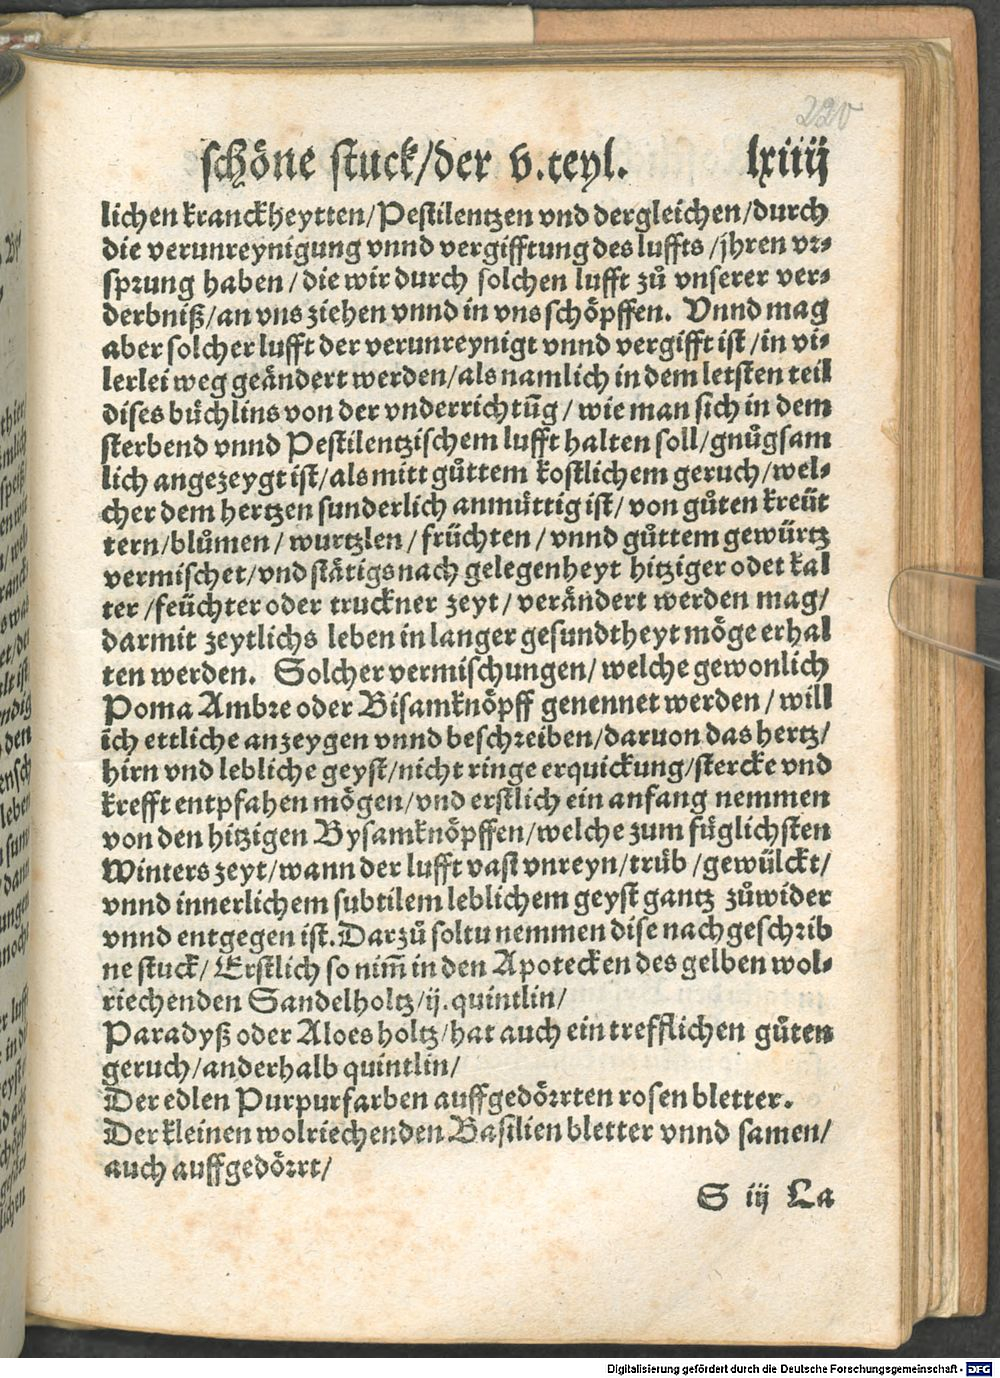 220
schöne stuck/der v.teyl. lxiiij
lichen kranckheytten/Pestilentzen vnd dergleichen/durch
die verunreynigung vnnd vergifftung des luffts/jhren vr⸗
sprung haben/die wir durch solchen lufft zů vnserer ver⸗
derbniß/an vns ziehen vnnd in vns schöpffen. Vnnd mag
aber solcher lufft der verunreynigt vnnd vergifft ist/in vi⸗
lerlei weg geändert werden/als namlich in dem letsten teil
dises büchlins von der vnderrichtūg/wie man sich in dem
sterbend vnnd Pestilentzischem lufft halten soll/gnůgsam
lich angezeygt ist/als mitt gůttem kostlichem geruch/wel⸗
cher dem hertzen sunderlich anmüttig ist/von gůten kreüt
tern/blůmen/wurtzlen/früchten/vnnd gůttem gewürtz
vermischet/vnd stätigs nach gelegenheyt hitziger odet kal
ter/feüchter oder truckner zeyt/verändert werden mag/
darmit zeytlichs leben in langer gesundtheyt möge erhal
ten werden. Solcher vermischungen/welche gewonlich
Poma Ambre oder Bisamknöpff genennet werden/will
ich ettliche anzeygen vnnd beschreiben/daruon das hertz/
hirn vnd lebliche geyst/nicht ringe erquickung/stercke vnd
krefft entpfahen mögen/vnd erstlich ein anfang nemmen
von den hitzigen Bysamknöpffen/welche zum füglichsten
Winters zeyt/wann der lufft vast vnreyn/trüb/gewülckt/
vnnd innerlichem subtilem leblichem geyst gantz zůwider
vnnd entgegen ist. Darzů soltu nemmen dise nachgeschrib
ne stuck/Erstlich so nim̄ in den Apotecken des gelben wol⸗
riechenden Sandelholtz/ij. quintlin/
Paradyß oder Aloes holtz/hat auch ein trefflichen gůten
geruch/anderhalb quintlin/
Der edlen Purpurfarben auffgedörrten rosen bletter.
Der kleinen wolriechenden Basilien bletter vnnd samen/
auch auffgedörrt/
S iij La
Digitalisierung gefördert durch die Deutsche Forschungsgemeinschaft - DFG